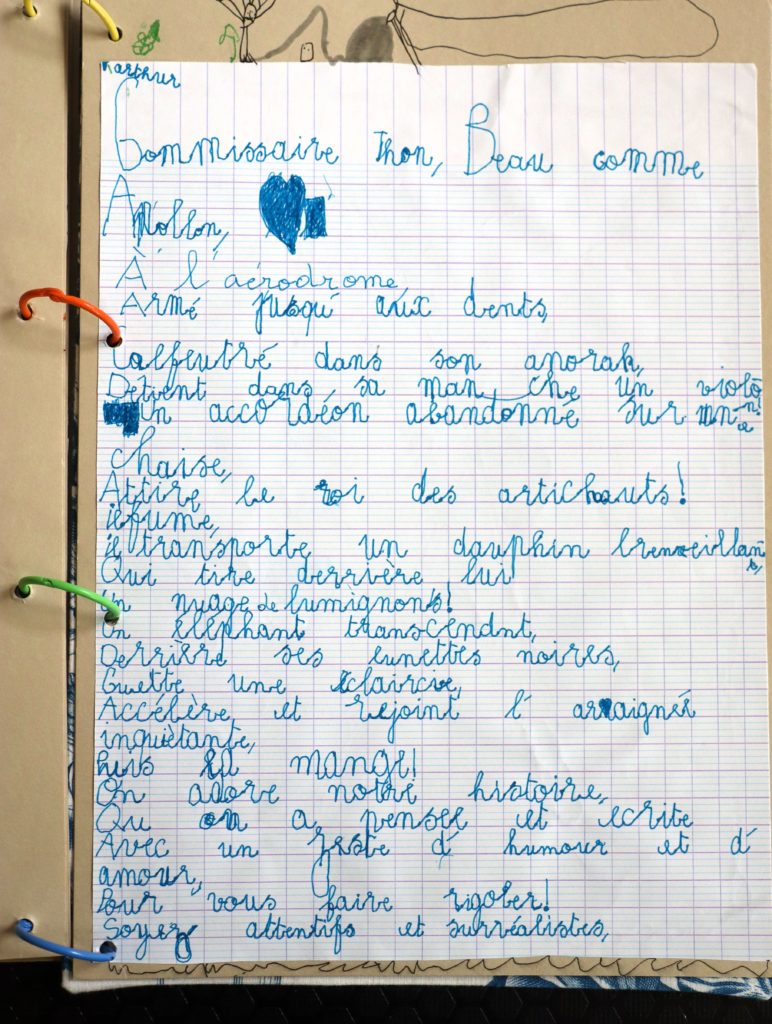 arthur
Commissaire Thon, Beau comme
Apollon,
À l'aérodrome,
Armé jusqu'aux dents,
Calfeutré dans son anorak,
Detient dans sa man che un violon!
Un accordéon abandonné sur une
chaise,
Attire le roi des artichauts!
je fume,
je transporte un dauphin bienveillant,
Qui tire derrière lui
Un nuage de lumignons!
Un éléphant transcendnt,
Derrière ses lunettes noires,
Guette une éclaircie,
Accélère et rejoint l' arraignée
inquiétante,
Puis la mange!
On adore notre histoire,
Qu on a pensee et ecrite
Avec un zeste d' humour et d'
amour,
Pour vous faire rigoler!
Soyez attentifs et surréalistes,